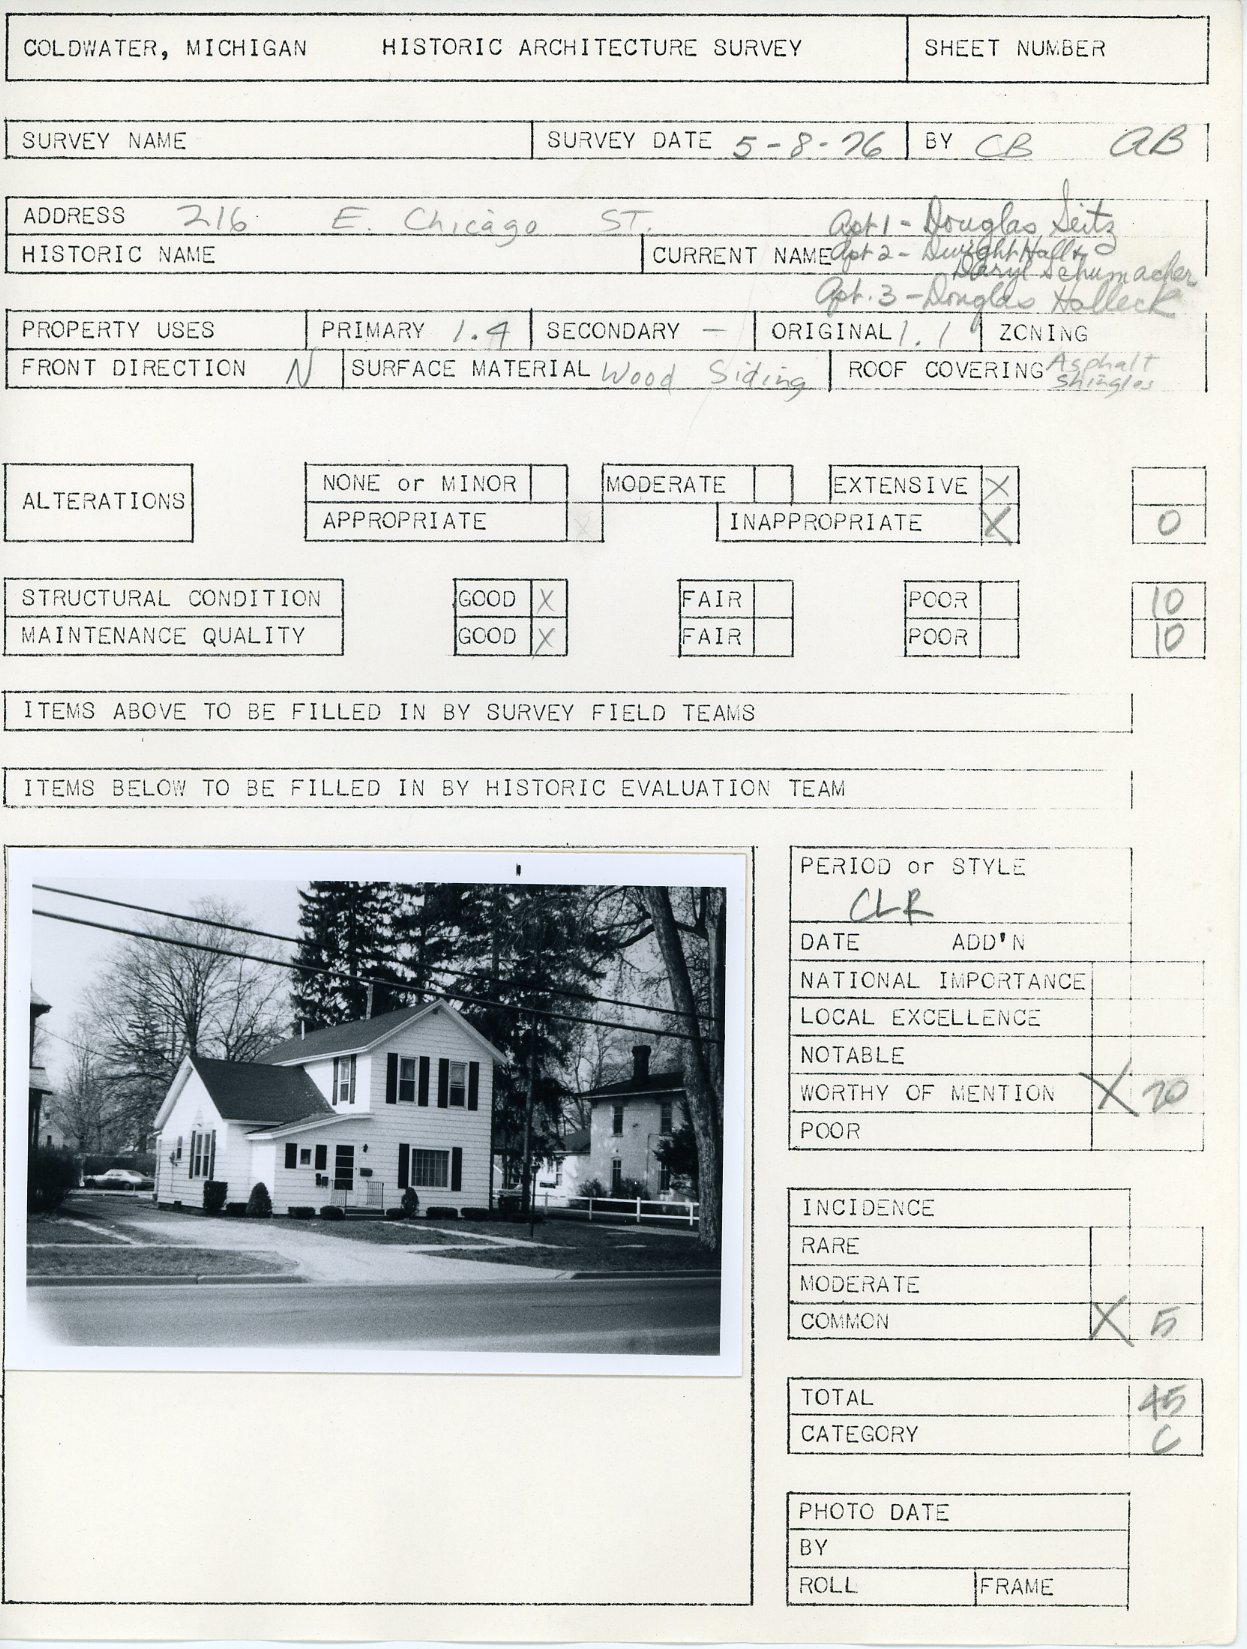 COLDWATER, MICHIGAN HISTORIC ARCHITECTURE SURVEY SHEET NUMBER
SURVEY NAME SURVEY DATE 5-8-76 BY CB AB
ADDRESS 216 E. Chicago ST. Apt 1 - Douglas Seitz
HISTORIC NAME CURRENT NAME Apt 2 - Dwight Hall &
Daryl Schumacher
Apt. 3 - Douglas Halleck
PROPERTY USES PRIMARY 1.4 SECONDARY — ORIGINAL 1.1 ZONING
FRONT DIRECTION N SURFACE MATERIAL Wood Siding ROOF COVERING Asphalt
Shingles
ALTERATIONS NONE or MINOR MODERATE EXTENSIVE X
APPROPRIATE INAPPROPRIATE X 0
STRUCTURAL CONDITION GOOD X FAIR POOR 10
MAINTENANCE QUALITY GOOD X FAIR POOR 10
ITEMS ABOVE TO BE FILLED IN BY SURVEY FIELD TEAMS
ITEMS BELOW TO BE FILLED IN BY HISTORIC EVALUATION TEAM
PERIOD or STYLE
CLR
DATE ADD'N
NATIONAL IMPORTANCE
LOCAL EXCELLENCE
NOTABLE
WORTHY OF MENTION X 20
POOR
INCIDENCE
RARE
MODERATE
COMMON X 5
TOTAL 45
CATEGORY C
PHOTO DATE
BY
ROLL FRAME